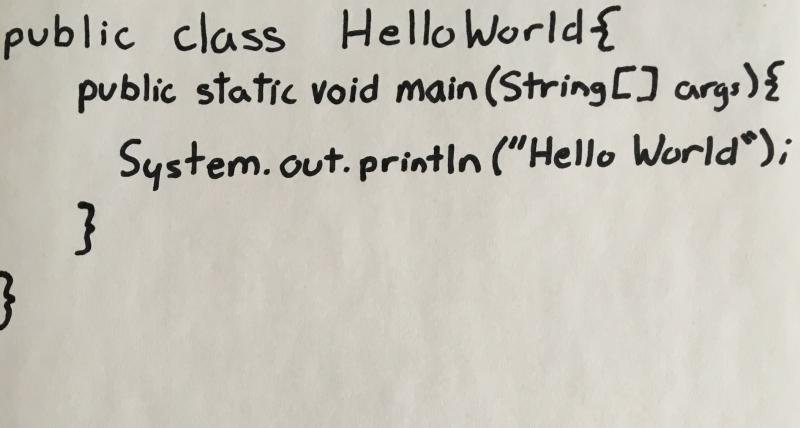 public class HelloWorld{
public static void main(String[] args){
System.out.println("Hello World");
}
}